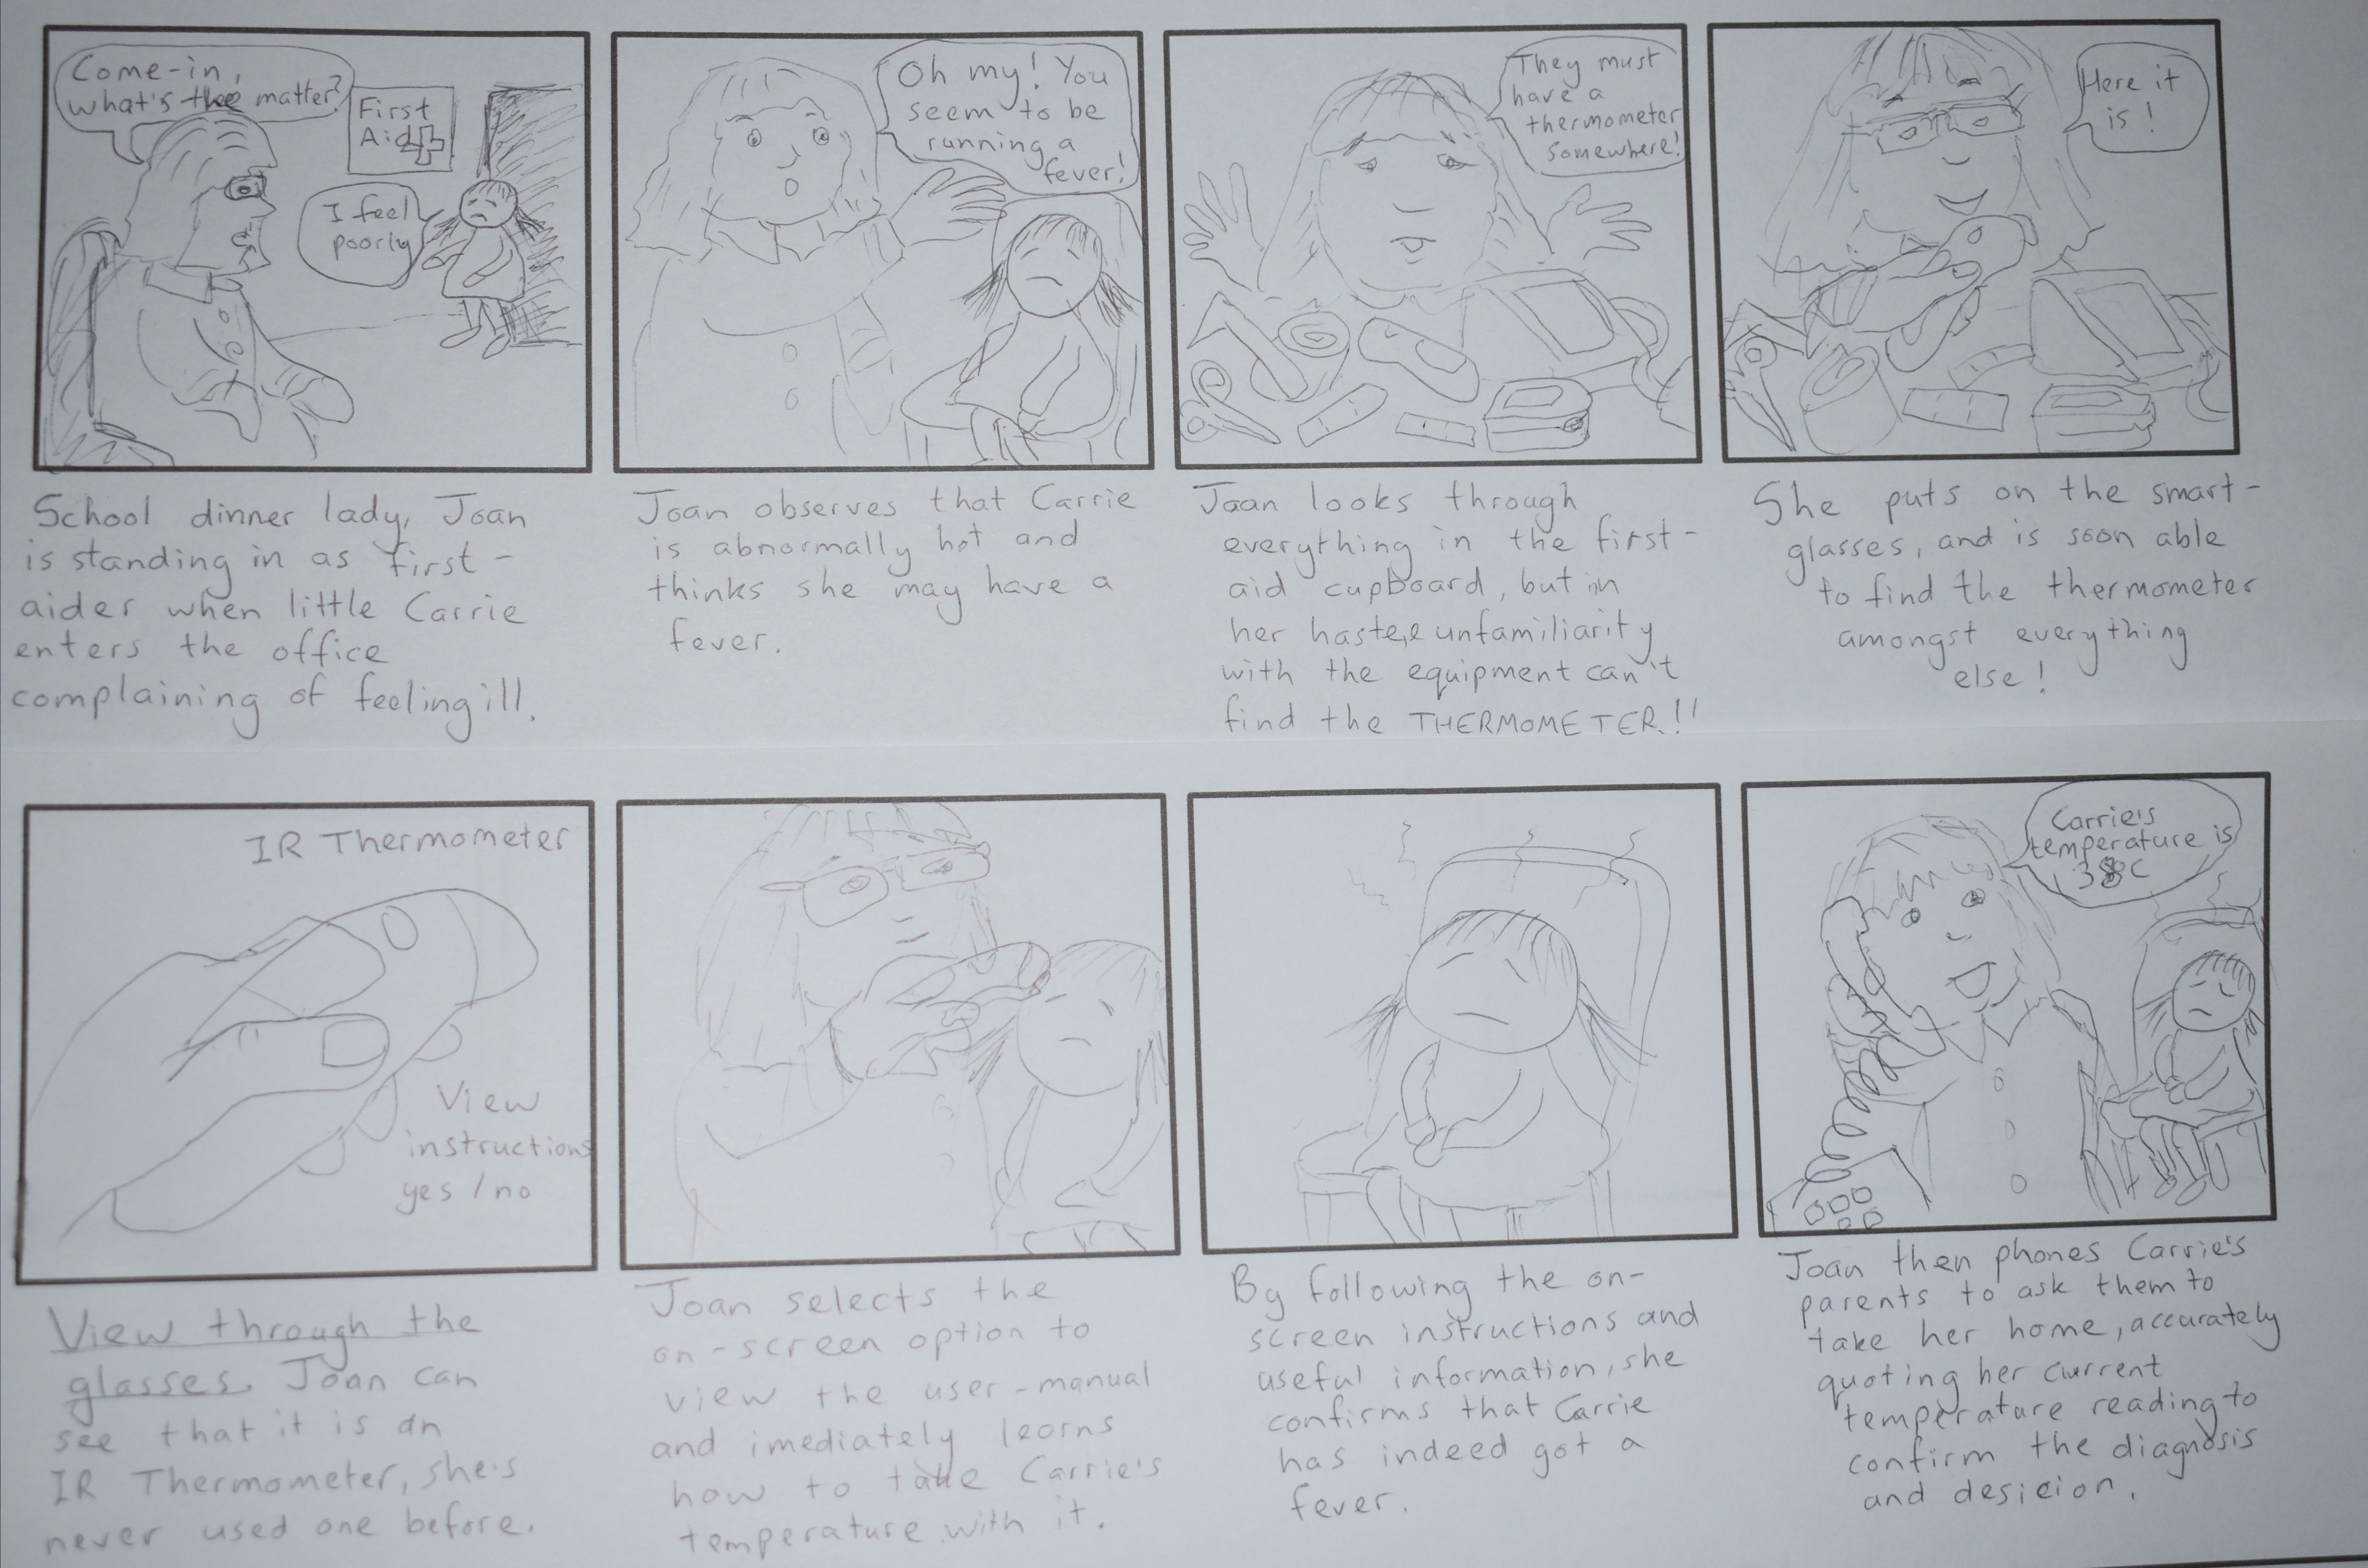 Come-in,
what's the matter?
First
Aid
I feel
poorly
School dinner lady, Joan
is standing in as first-
aider when little Carrie
enters the office
complaining of feeling ill.
Oh my! You
seem to be
running a
fever!
Joan observes that Carrie
is abnormally hot and
thinks she may have a
fever.
They must
have a
thermometer
somewhere!
Joan looks through
everything in the first-
aid cupboard, but in
her haste, unfamiliarity
with the equipment can't
find the THERMOMETER!!
Here it
is!
She puts on the smart-
glasses, and is soon able
to find the thermometer
amongst everything
else!
IR Thermometer
View
instructions
yes / no
View through the
glasses. Joan can
see that it is an
IR Thermometer, she's
never used one before.
Joan selects the
on-screen option to
view the user-manual
and imediately learns
how to take Carrie's
temperature with it.
By following the on-
screen instructions and
useful information, she
confirms that Carrie
has indeed got a
fever.
Carrie's
temperature is
Joan then phones Carrie's
parents to ask them to
take her home, accurately
quoting her current
temperature reading to
confirm the diagnosis
and desicion.